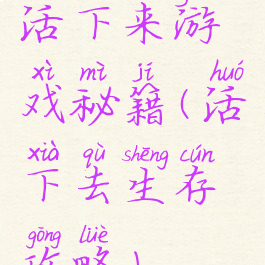 活下来游
xì mì jí huó
戏秘籍(活
xià qù shēng cún
下去生存
gōng lüè
攻略)